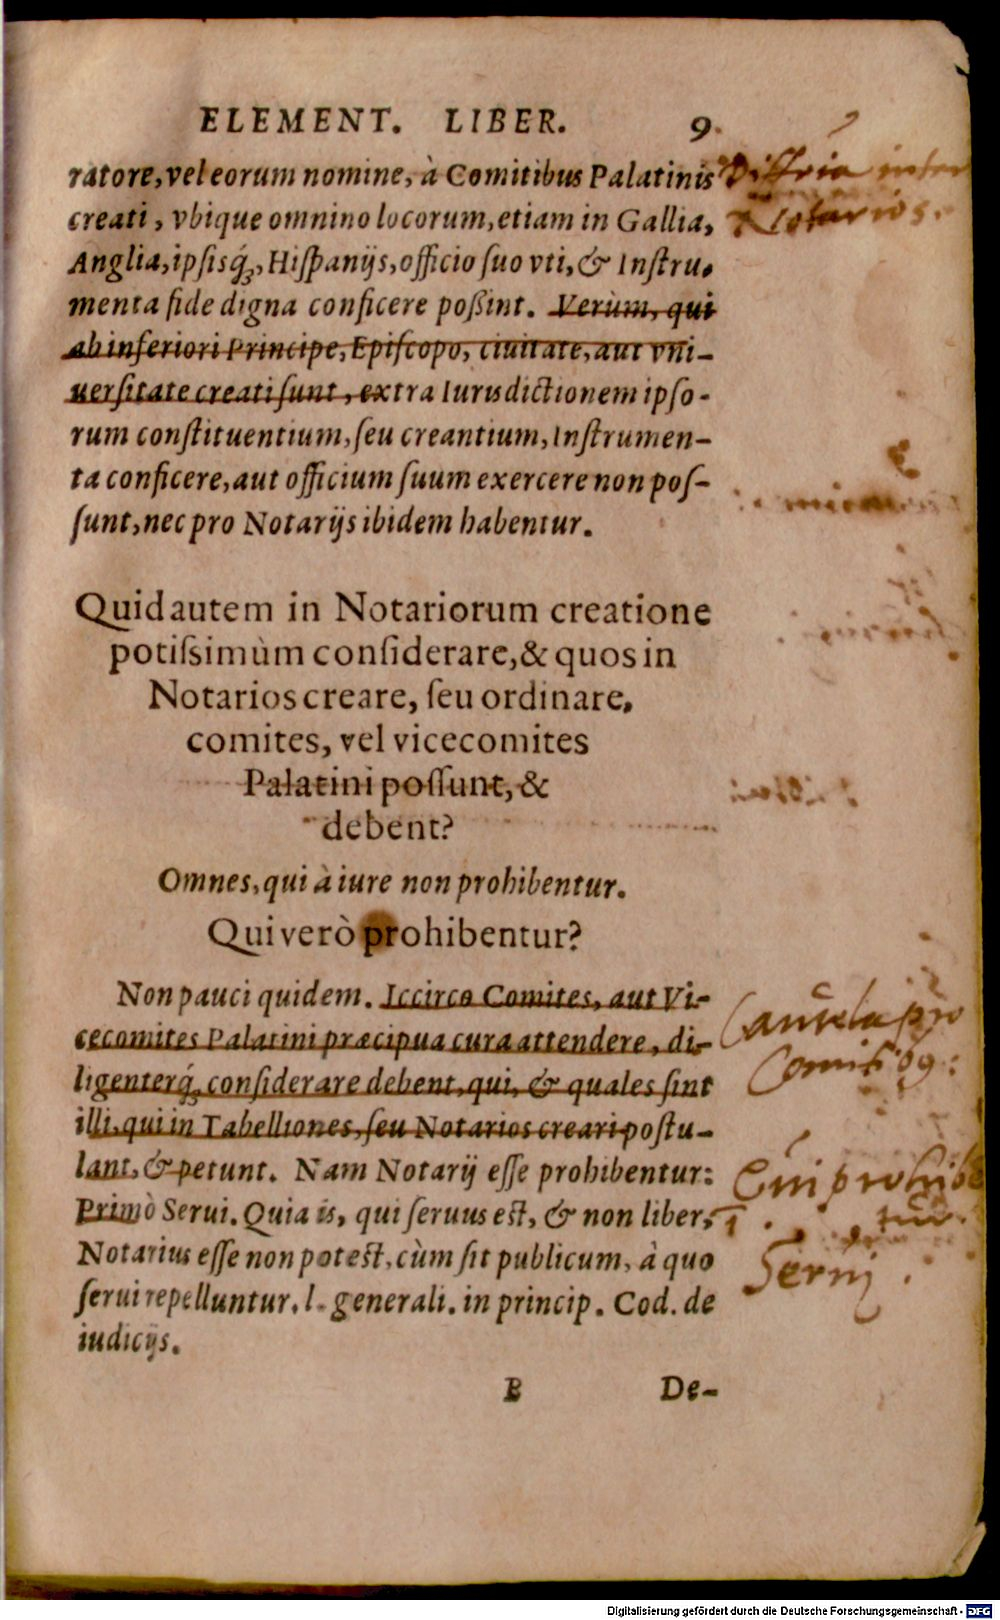 ELEMENT. LIBER. 9.
ratore, vel eorum nomine, à Comitibus Palatinis
creati, vbique omnino locorum, etiam in Gallia,
Anglia, ipsisq́;, Hispanijs, officio suo vti, & Instru-
menta fide digna conficere poßint. Verùm, qui
ab inferiori Principe, Episcopo, ciuitate, aut vni-
uersitate creati sunt, extra Iurisdictionem ipso-
rum constituentium, seu creantium, Instrumen-
ta conficere, aut officium suum exercere non pos-
sunt, nec pro Notarijs ibidem habentur.
Differia inter
Notarios.
Quid autem in Notariorum creatione
potissimùm considerare, & quos in
Notarios creare, seu ordinare,
comites, vel vicecomites
Palatini possunt, &
debent?
Omnes, qui à iure non prohibentur.
Qui verò prohibentur?
Non pauci quidem. Iccirco Comites, aut Vi-
cecomites Palatini præcipua cura attendere, di-
ligenterq́;, considerare debent, qui, & quales sint
illi, qui in Tabelliones, seu Notarios creari postu-
lant, & petunt. Nam Notarij esse prohibentur:
Primò Serui. Quia is, qui seruus est, & non liber,
Notarius esse non potest, cùm sit publicum, à quo
serui repelluntur. l. generali. in princip. Cod. de
iudicijs.
Cautela pro
Qui prohibe
tur.
1.
Servi.
B De-
Digitalisierung gefördert durch die Deutsche Forschungsgemeinschaft - DFG